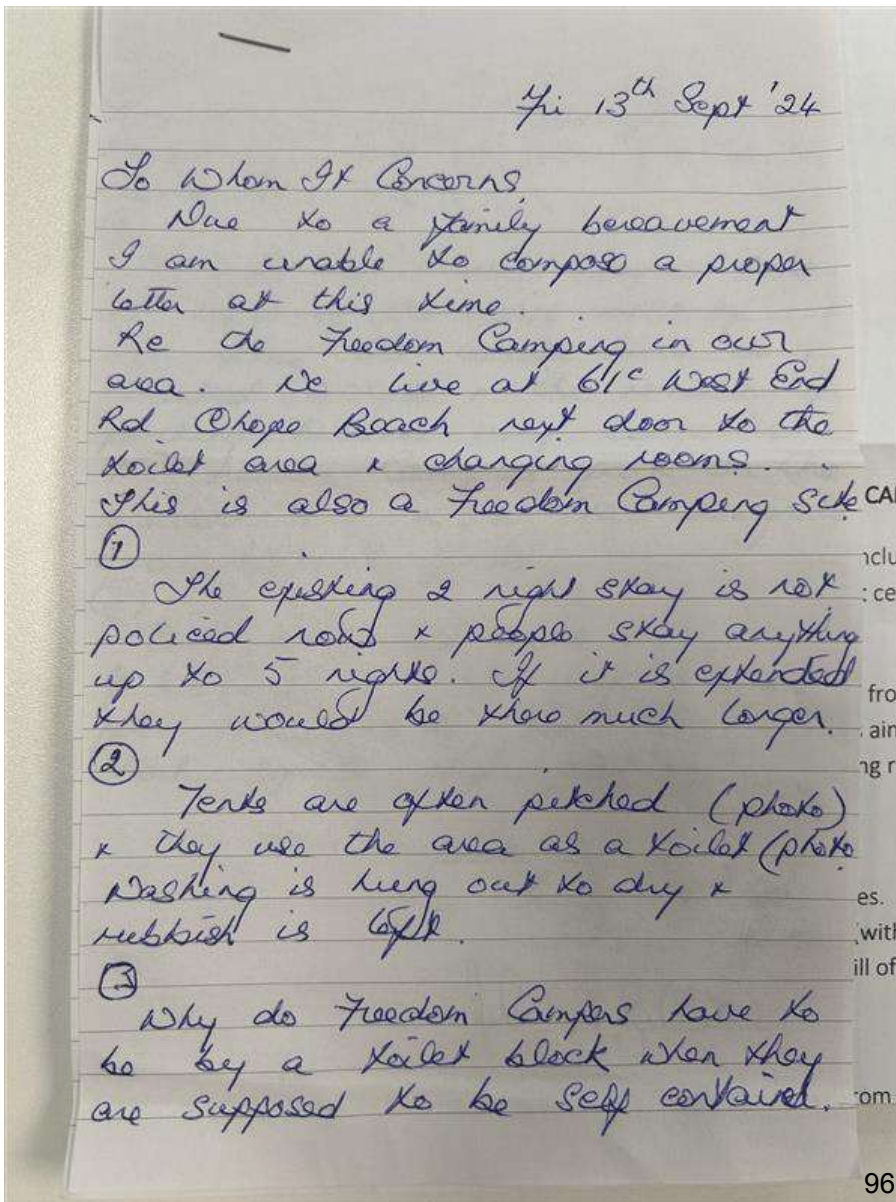 Fri 13th Sept '24
To Whom It Concerns,
Due to a family bereavement
I am unable to compose a proper
letter at this time.
Re the Freedom Camping in our
area. We live at 61c West End
Rd Ohope Beach next door to the
toilet area & changing rooms.
This is also a Freedom Camping Site
①
The existing 2 night stay is not
policed now & people stay anything
up to 5 nights. If it is extended
they would be there much longer.
②
Tents are often pitched (photo)
& they use the area as a toilet (photo
Washing is hung out to dry &
rubbish is left.
③
Why do Freedom Campers have to
be by a toilet block when they
are supposed to be self contained.
CA
nclu
: ce
fro
ain
ng r
es.
(with
ill of
om
96